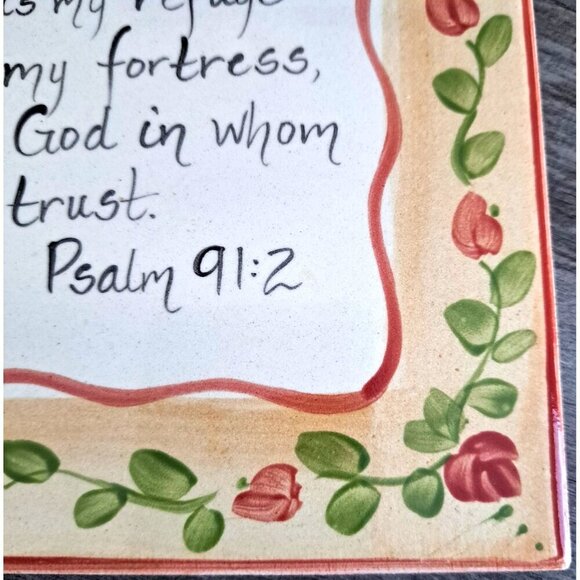 is my refuge
my fortress,
God in whom
trust.
Psalm 91:2